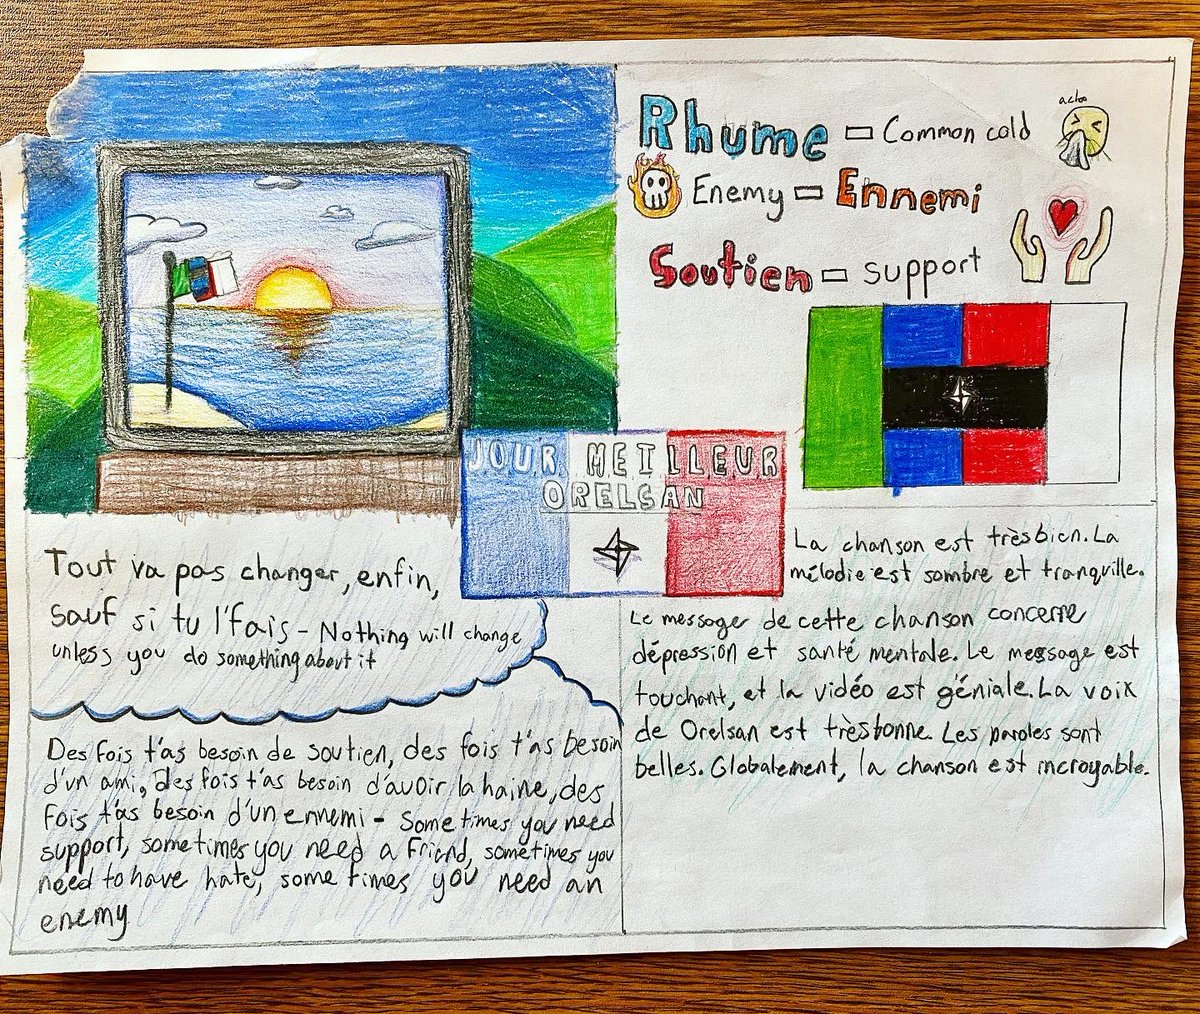 achoo
Rhume = Common cold
Enemy = Ennemi
Soutien = support
JOUR MEILLEUR
ORELSAN
Tout va pas changer, enfin,
sauf si tu l'fais - Nothing will change
unless you do something about it
Des fois t'as besoin de soutien, des fois t'as besoin
d'un ami, des fois t'as besoin d'avoir la haine, des
fois t'as besoin d'un ennemi - Sometimes you need
support, sometimes you need a friend, sometimes you
need to have hate, sometimes you need an
enemy
La chanson est très bien. La
mélodie est sombre et tranquille.
Le message de cette chanson concerne
dépression et santé mentale. Le message est
touchant, et la vidéo est géniale. La voix
de Orelsan est très bonne. Les paroles sont
belles. Globalement, la chanson est incroyable.